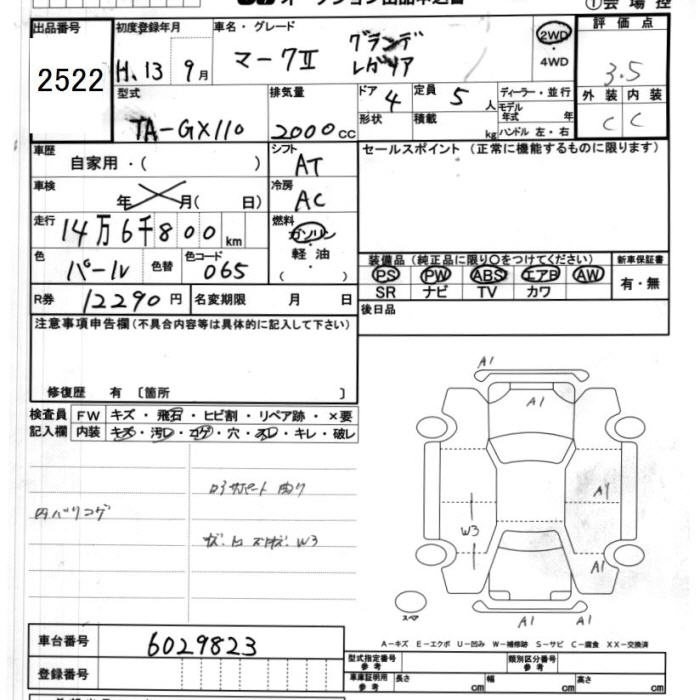 オークション出品申込書
①会場控
出品番号 2522
初度登録年月 H.13 9月
車名・グレード マークⅡ グランデ レガリア
2WD・4WD
評価点 3.5
外装 内装
C C
型式 TA-GX110
排気量 2000cc
ドア 4
形状
定員 5人
積載 kg
ディーラー・並行
モデル年式 年
ハンドル 左・右
車歴 自家用・( )
シフト AT
セールスポイント(正常に機能するものに限ります)
車検 年 月( 日)
冷房 AC
走行 14万6千800km
燃料 ガソリン・軽油 ( )
色 パール 色替 色コード 065
装備品(純正品に限り○をつけてください)
PS PW ABS エアB AW
SR ナビ TV カワ
新車保証書 有・無
R券 12290円 名変期限 月 日
後日品
注意事項申告欄(不具合内容等は具体的に記入して下さい)
修復歴 有 〔箇所 〕
検査員記入欄
FW キズ・飛石・ヒビ割・リペア跡・×要
内装 キズ・汚レ・コゲ・穴・スレ・キレ・破レ
内バリコゲ
W3
A1
A1
A1
W3
A1
A1 A1
スペア
A-キズ E-エクボ U-凹み W-補修跡 S-サビ C-腐食 XX-交換済
車台番号 6029823
登録番号
型式指定番号 参考
類別区分番号 参考
車庫証明用 参考 長さ cm 幅 cm 高さ cm